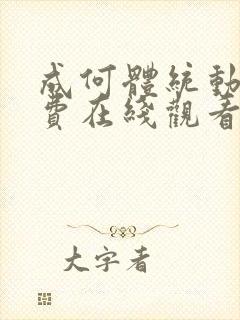 成何體統動
費在綫觀看
大字者